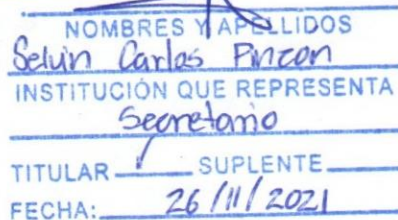 NOMBRES Y APELLIDOS
Selvin Carlos Pinzon
INSTITUCIÓN QUE REPRESENTA
Secretario
TITULAR / SUPLENTE
FECHA: 26/11/2021